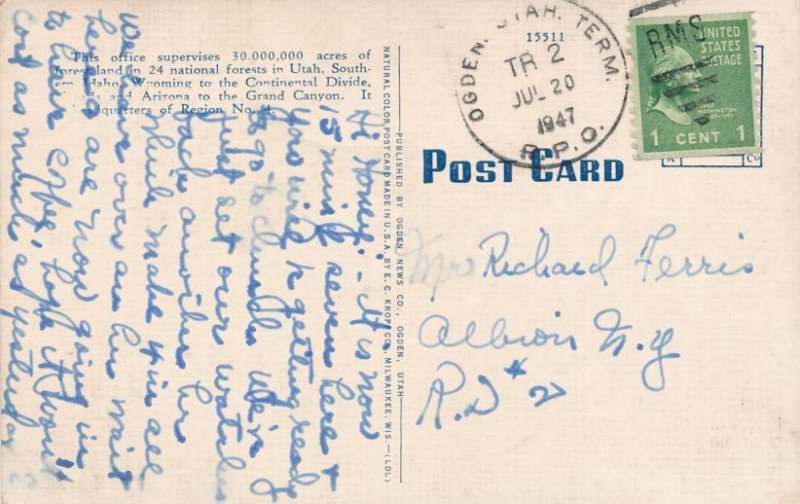 This office supervises 30,000,000 acres of
forest land in 24 national forests in Utah, South-
ern Idaho, Wyoming to the Continental Divide,
and Arizona to the Grand Canyon. It
quarters of Region No. 4.
Hi Honey:- it is now
15 min of seven here &
you will be getting ready
to go to church. We've
just set our watches
back another hr
while make 4 in all
We have over an hr wait
here & are now going in
to have coffee, hope it won't
cost as much as yesterday
NATURAL COLOR POST CARD MADE IN U.S.A. BY E. C. KROPP CO., MILWAUKEE, WIS.—(LDL)
PUBLISHED BY OGDEN NEWS CO., OGDEN, UTAH
OGDEN, UTAH. TERM.
TR 2
JUL 20
1947
R.P.O.
15511
RMS
UNITED
STATES
POSTAGE
GEORGE
WASHINGTON
1 CENT 1
POST CARD
Mrs Richard Ferris
Albion N.y
R.D # 2